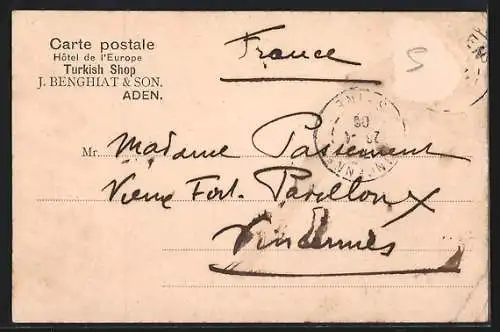 Carte postale
Hôtel de l'Europe
Turkish Shop
J. BENGHIAT & SON.
ADEN.
France
5
Mr. Madame Passement
Vieux Fort. Pavillon X
Vincennes
SEINE
06